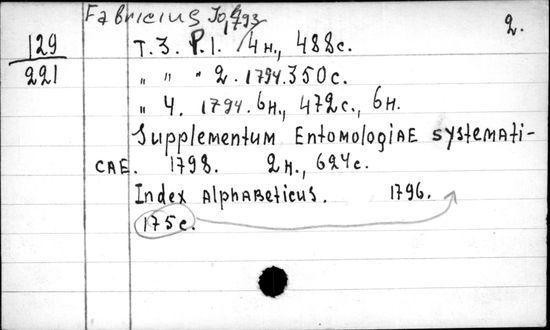 Fabricius Jo. C. 2.
1793
129 T. 3. P. 1. 4н., 488с.
221 " " " 2. 1794. 350с.
" 4. 1794. 6н., 472с., 6н.
Supplementum Entomologiae systemati-
cae. 1798. 2н., 624с.
Index Alphabeticus. 1796.
175с.